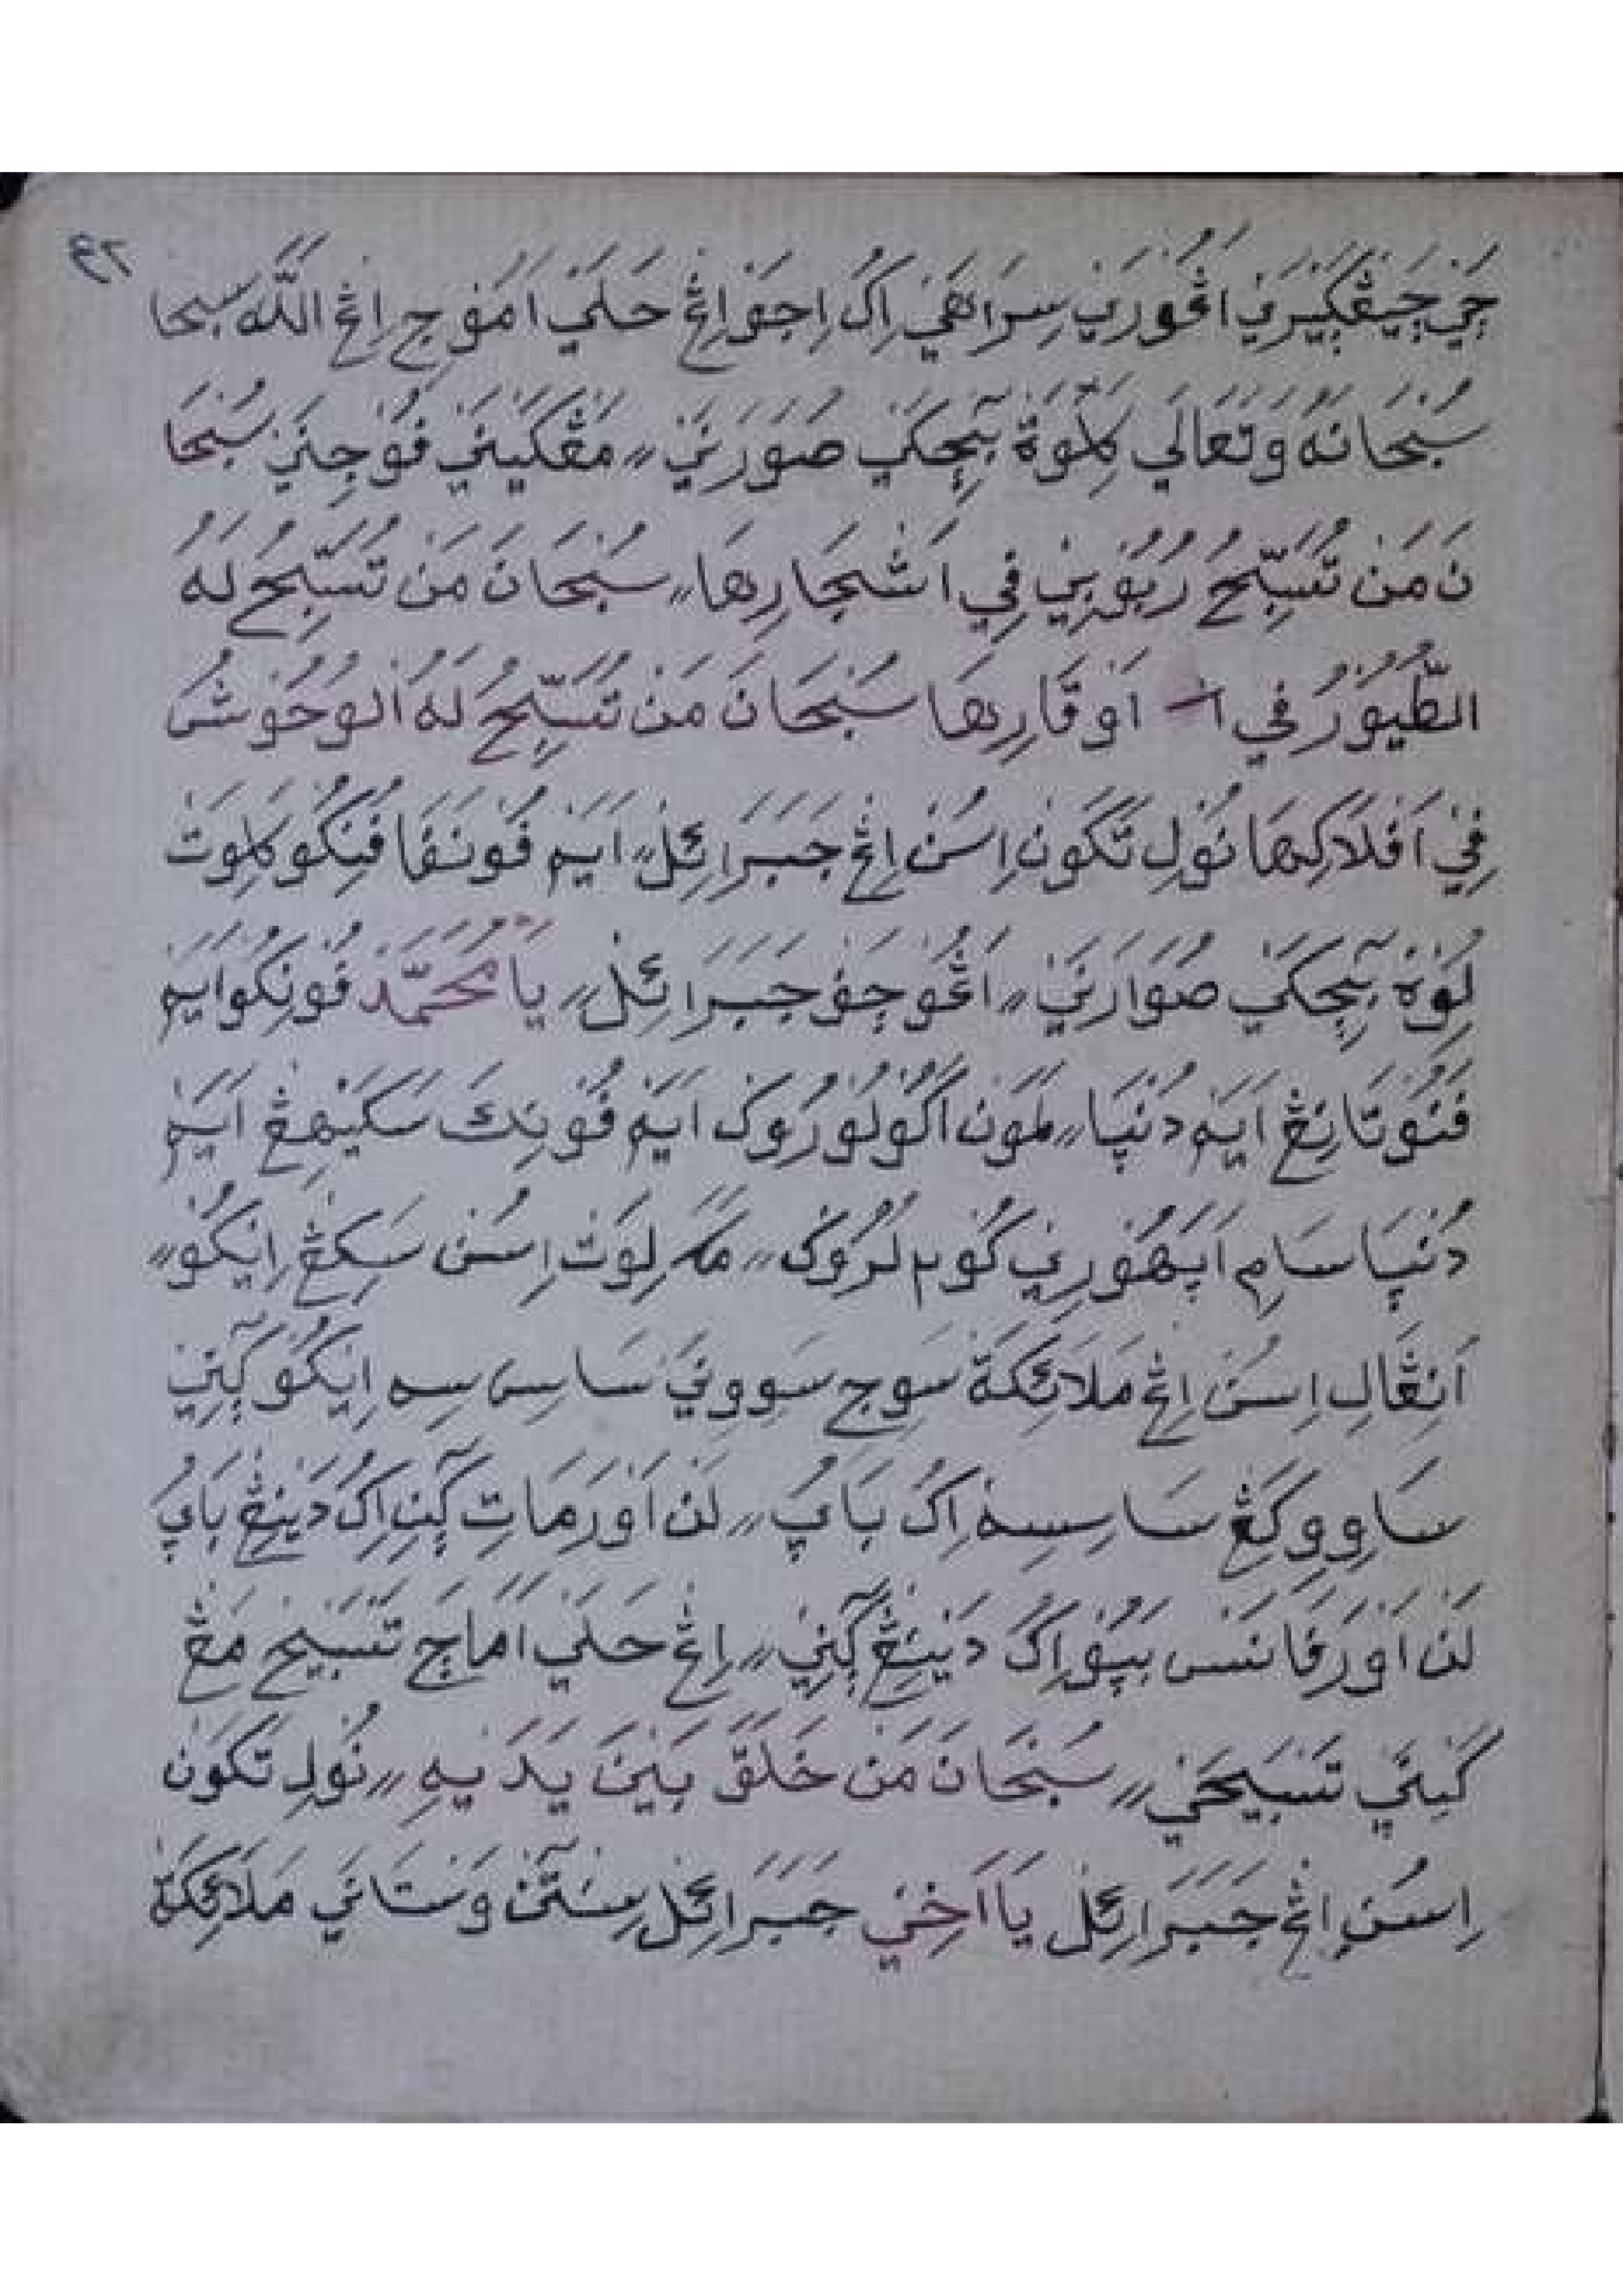 ٩٢
جَيْ جَيْڠْكَيْرَنِيْ اڠْڮُوْرَنِيْ سِرَاهَيْ اِكُ اِجَوْ اِڠْ حَلَيْ اَمَوْجِ اِڠْ اللَّهَ سبحا
سُبْحَانَهُ وَتَعَالَي كَلَوَة بٓچِكَيْ صُوَرَنَيْ ،، مَڠْكَيْنَيْ فُوْجِنَيْ سُبْحَا
نَ مَنْ تُسَبِّحُ رُبُوْبِيْ فِي اَشْجَارِهَا ،، سُبْحَانَ مَنْ تُسَبِّحُ لَهُ
الطُّيُوْرُ فِي ا اَوْقَارِهَا سُبْحَانَ مَنْ تُسَبِّحُ لَهُ الْوُحُوْشُ
فِيْ اَفْلَاكِهَا نُوْلِ تَكَوْن اِسُنْ اِڠْ جَبَرَائِلْ ،، اَيَمْ فُوْنَفَا فُنِكُو كَلِوَتْ
لِوَة بٓچِكَيْ صُوَارَنَيْ ،، اَڠُوْچَفْ جَبَرَائِلْ ،، يَا مُحَمَّدْ فُوْنِكُوْ اَيَمْ
فَنُوْتَانِڠْ اَيَمْ دُنْيَا ،، لَمَوْن اَڮُوْلُوْرُوْكْ اَيَمْ فُوْنِكَ سَكَيْهِڠْ اَيَمْ
دُنْيَا سَامِ اَپَهُوْرِيْ كُوْم لُرُوْكْ ،، مَّهْ لِوَتْ اِسُنْ سَكِڠْ اِيْكُوْ ،،
اَنِڠَالِ اِسُنْ اِڠْ مَلَائِكَةْ سَوِجِ سَووِيْ سَاسِسِه اِيْكُوْ كٓنِيْ
سَاوِووْكَڠْ سَاسِسِهْ اِكُ بَاپُ ،، لَنْ اَوْرَمَاتِ كٓنِ اِكُ دَيْنِڠْ بَاپُ
لَنْ اَوْرَفَانَسْ بَپُوْ اِكُ دَيْنِڠْ كٓنِيْ ،، اِڠْ حَلَيْ اَمَاجَ تَسْبِيْحْ مَڠْ
كَيْنَيْ تَسْبَيْحَيْ ،، سُبْحَانَ مَنْ خَلَقَ بَيْنَ يَدَيْهِ ،، نُوْلِ تَكَوْن
اِسُنْ اِڠْ جَبَرَائِلْ يَا اَخِيْ جَبَرَائِلْ سِنْتٓنْ وَسْتَانَيْ مَلَائِكَةْ